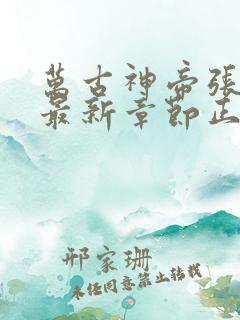 萬古神帝張
最新章節正
邢家珊
未任同意禁止转载